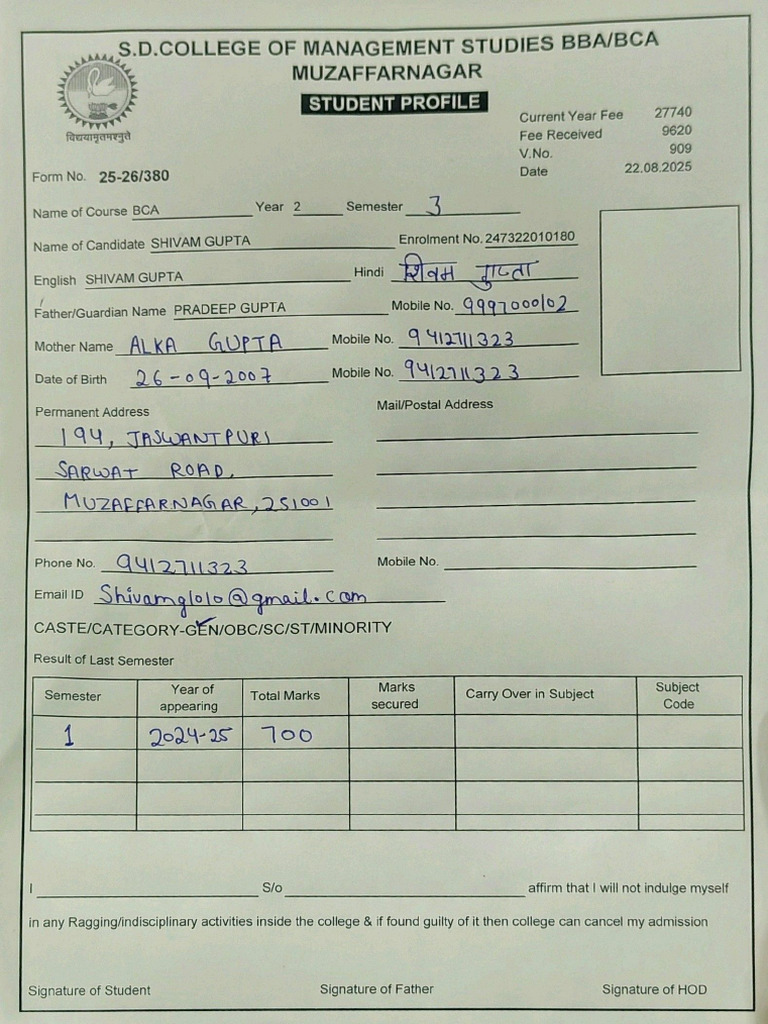 S.D.COLLEGE OF MANAGEMENT STUDIES BBA/BCA
MUZAFFARNAGAR
STUDENT PROFILE
विद्ययामृतमश्नुते
Current Year Fee 27740
Fee Received 9620
V.No. 909
Date 22.08.2025
Form No. 25-26/380
Name of Course BCA Year 2 Semester 3
Name of Candidate SHIVAM GUPTA Enrolment No. 247322010180
English SHIVAM GUPTA Hindi शिवम गुप्ता
Father/Guardian Name PRADEEP GUPTA Mobile No. 9997000102
Mother Name ALKA GUPTA Mobile No. 9412711323
Date of Birth 26-09-2007 Mobile No. 9412711323
Permanent Address Mail/Postal Address
194, JASWANTPURI
SARWAT ROAD,
MUZAFFARNAGAR, 251001
Phone No. 9412711323 Mobile No.
Email ID Shivamg1010@gmail.com
CASTE/CATEGORY-GEN/OBC/SC/ST/MINORITY
Result of Last Semester
Semester Year of appearing Total Marks Marks secured Carry Over in Subject Subject Code
1 2024-25 700
I S/o affirm that I will not indulge myself
in any Ragging/indisciplinary activities inside the college & if found guilty of it then college can cancel my admission
Signature of Student Signature of Father Signature of HOD